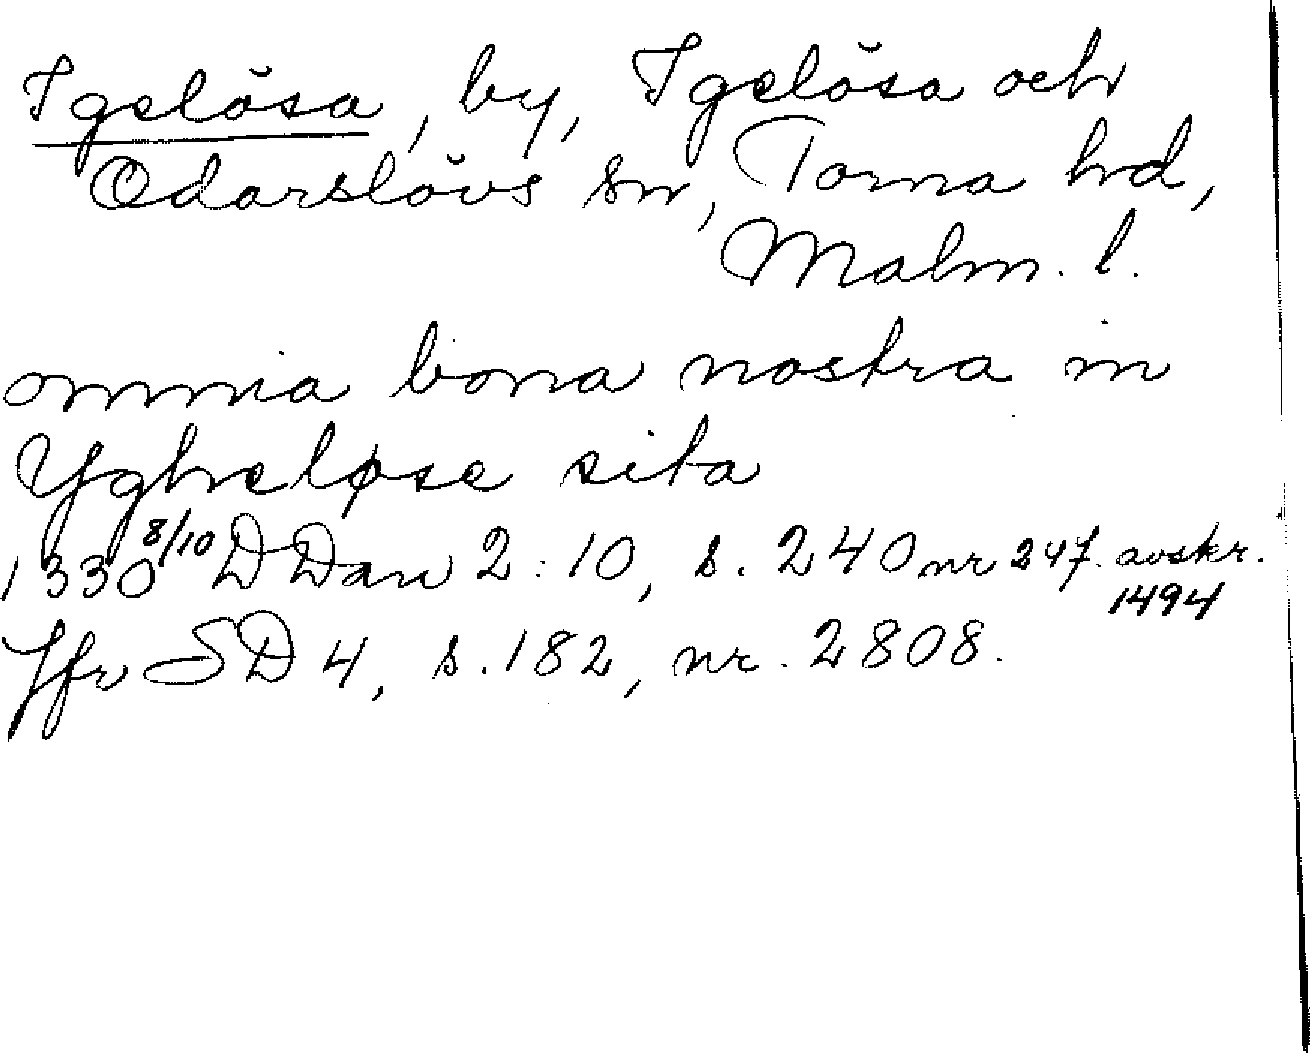 Igelösa, by, Igelösa och
Odarslövs sn, Torna hd,
Malm. l.
omnia bona nostra in
Yghreløse sita
1330 8/10 DDan 2:10, s. 240 nr 247. avskr. 1494
Jfr SD 4, s. 182, nr. 2808.